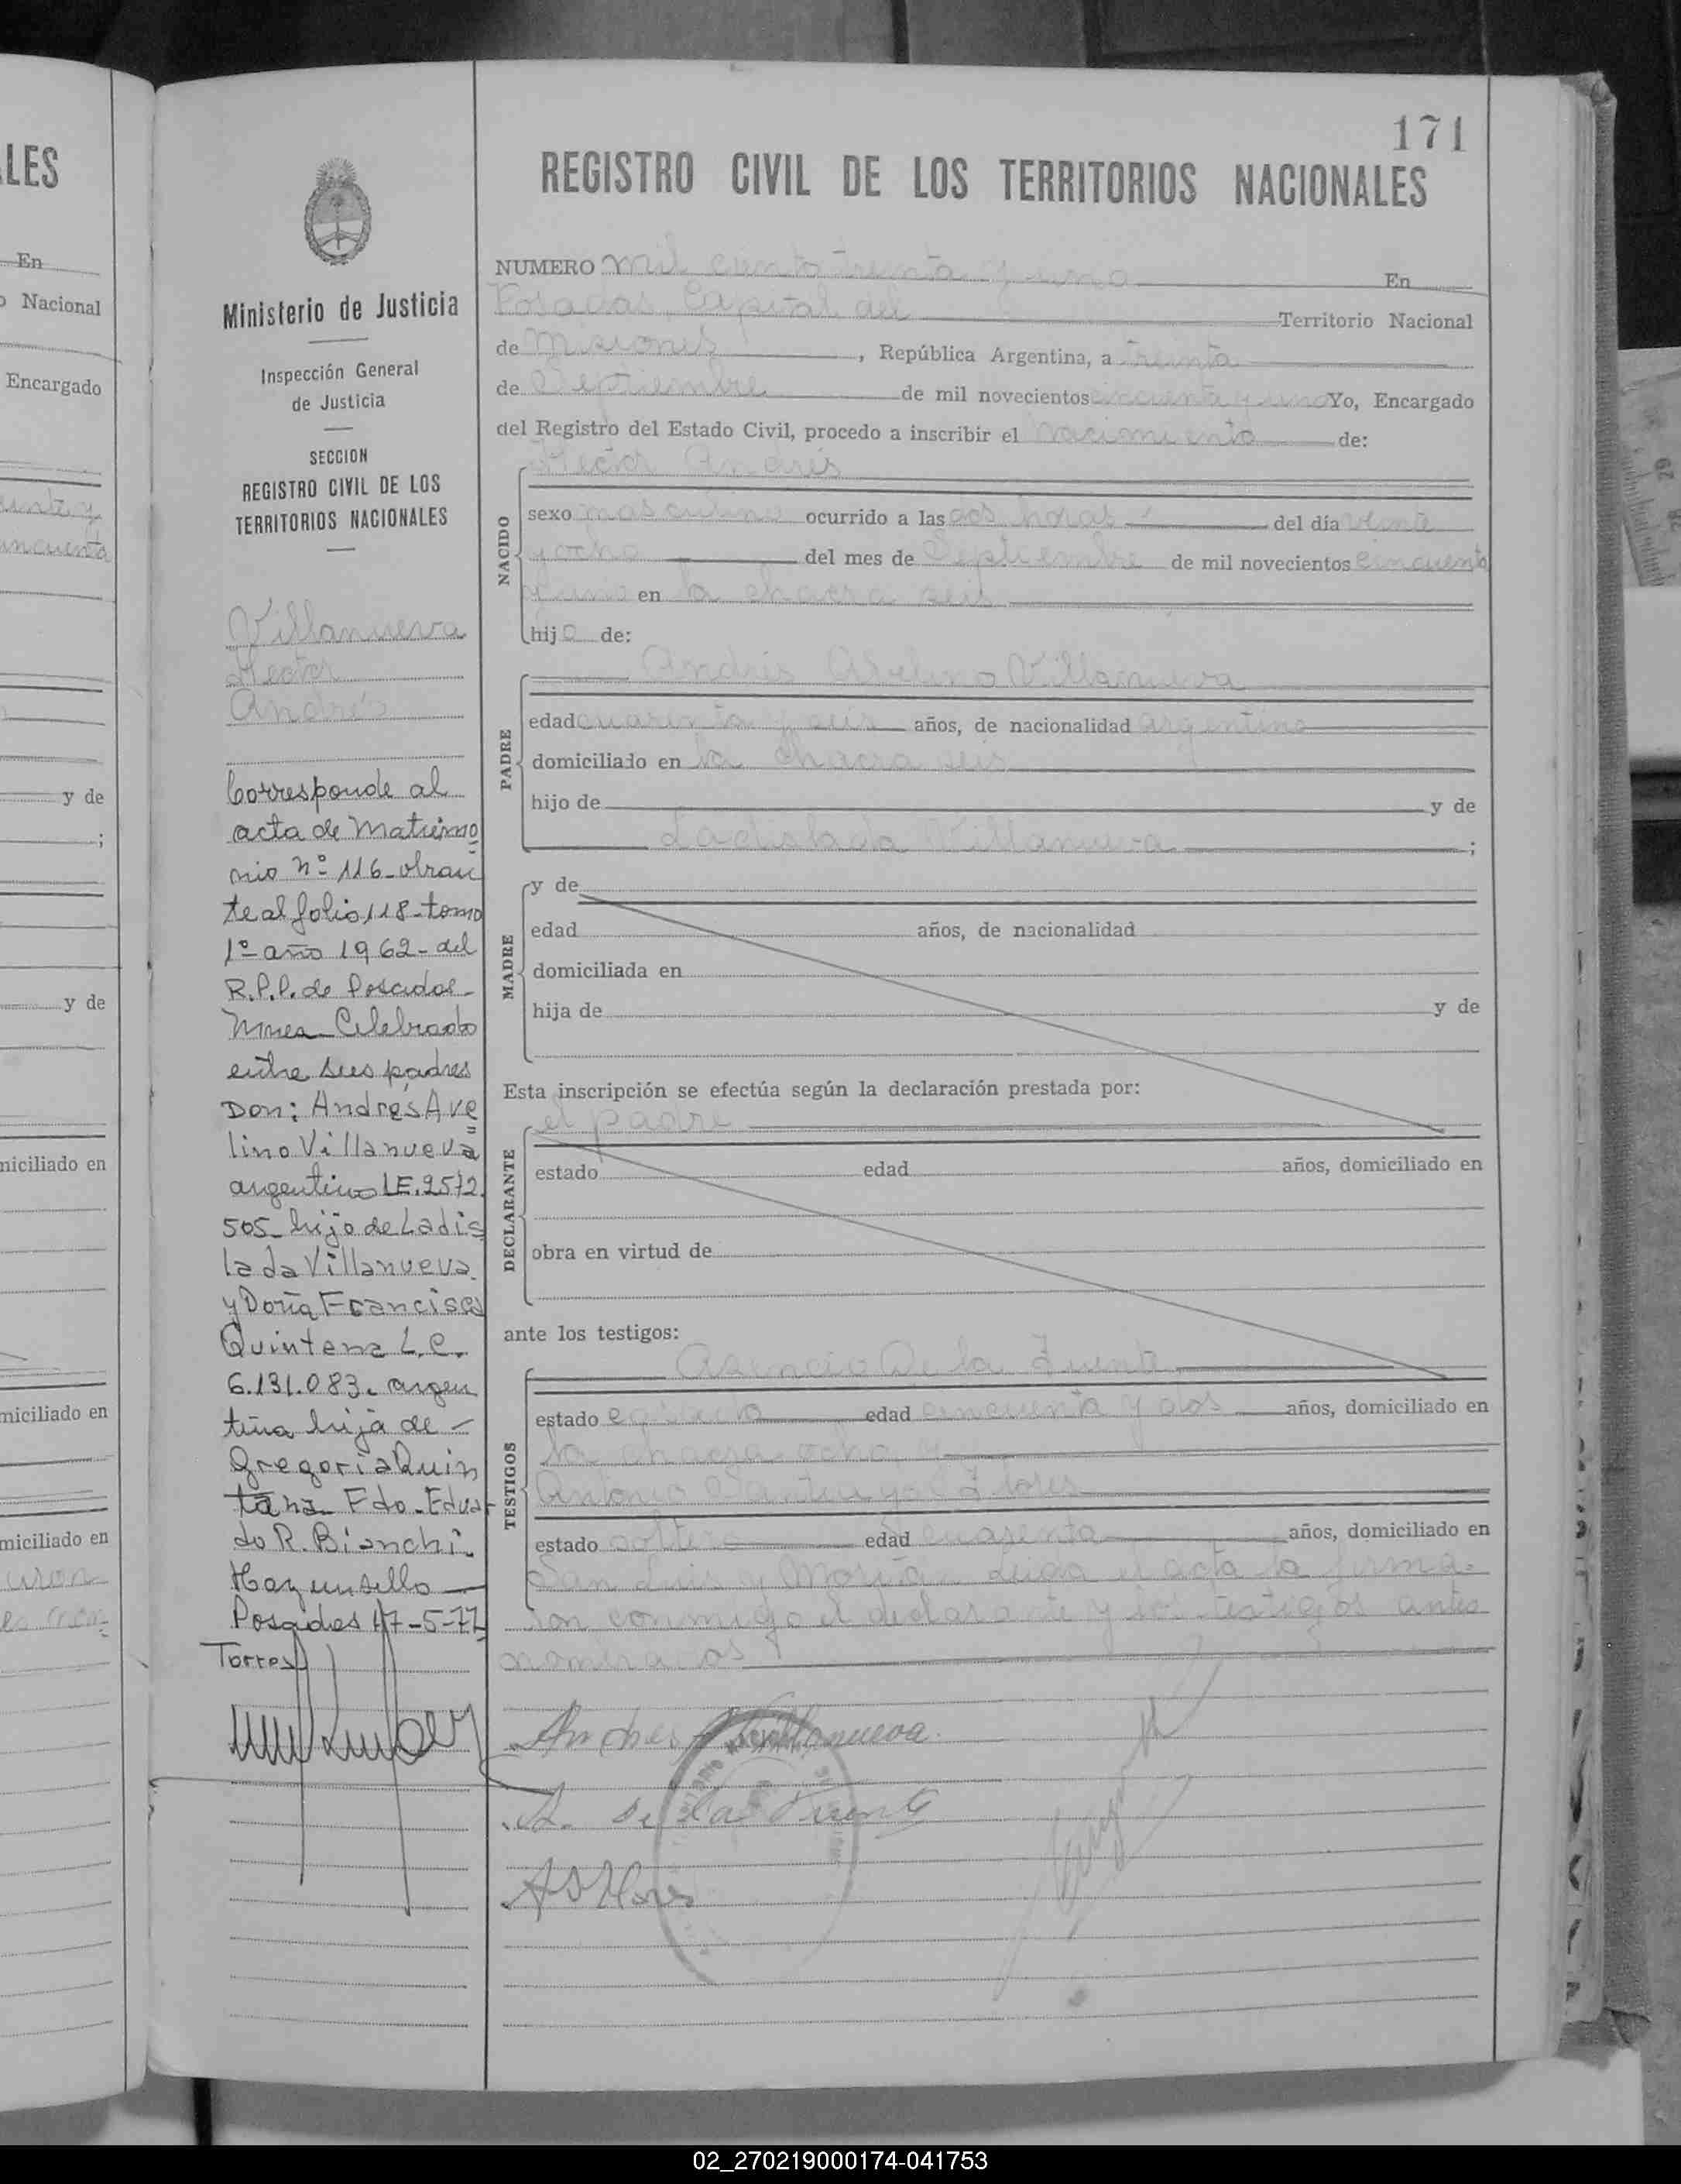 LES
En
o Nacional
Encargado
cincuenta
y de
;
y de
miciliado en
miciliado en
miciliado en
171
REGISTRO CIVIL DE LOS TERRITORIOS NACIONALES
Ministerio de Justicia
Inspección General
de Justicia
SECCION
REGISTRO CIVIL DE LOS
TERRITORIOS NACIONALES
Villanueva
Hector
Andrés
Corresponde al
acta de Matrimo
nio nº 116-obran
te al folio 118-tomo
1º año 1962-del
R.P.P. de Posadas-
Mnes Celebrado
entre sus padres
Don: Andres Ave
lino Villanueva
argentino LE.2572.
505-hijo de Ladis
lada Villanueva
y Doña Francisca
Quintana L.C.
6.131.083. argen
tina hija de -
Gregoria Quin
tana Fdo-Eduar
do R. Bianchi.
Hay un sello
Posadas 17-5-77
Torres
NUMERO mil ciento treinta y uno En
Posadas, Capital del Territorio Nacional
de Misiones, República Argentina, a treinta
de Septiembre de mil novecientos cincuenta y uno Yo, Encargado
del Registro del Estado Civil, procedo a inscribir el nacimiento de:
NACIDO
Hector Andrés
sexo masculino ocurrido a las dos horas del día veinte
y ocho del mes de Septiembre de mil novecientos cincuenta
y uno en la chacra seis
hijo de:
PADRE
Andrés Avelino Villanueva
edad cuarenta y seis años, de nacionalidad argentino
domiciliado en la chacra seis
hijo de y de
Ladislada Villanueva ;
MADRE
y de
edad años, de nacionalidad
domiciliada en
hija de y de
Esta inscripción se efectúa según la declaración prestada por:
DECLARANTE
el padre
estado edad años, domiciliado en
obra en virtud de
ante los testigos:
TESTIGOS
Asencio De la Fuente
estado edad cincuenta y dos años, domiciliado en
la chacra ocho y
Antonio Santiago Flores
estado soltero edad cuarenta años, domiciliado en
San Luis y Morán. Leida el acta la firma-
ron conmigo el declarante y los testigos antes
nombrados
Andres A Villanueva.
A. de la Fuente
A S Flores
02_270219000174-041753